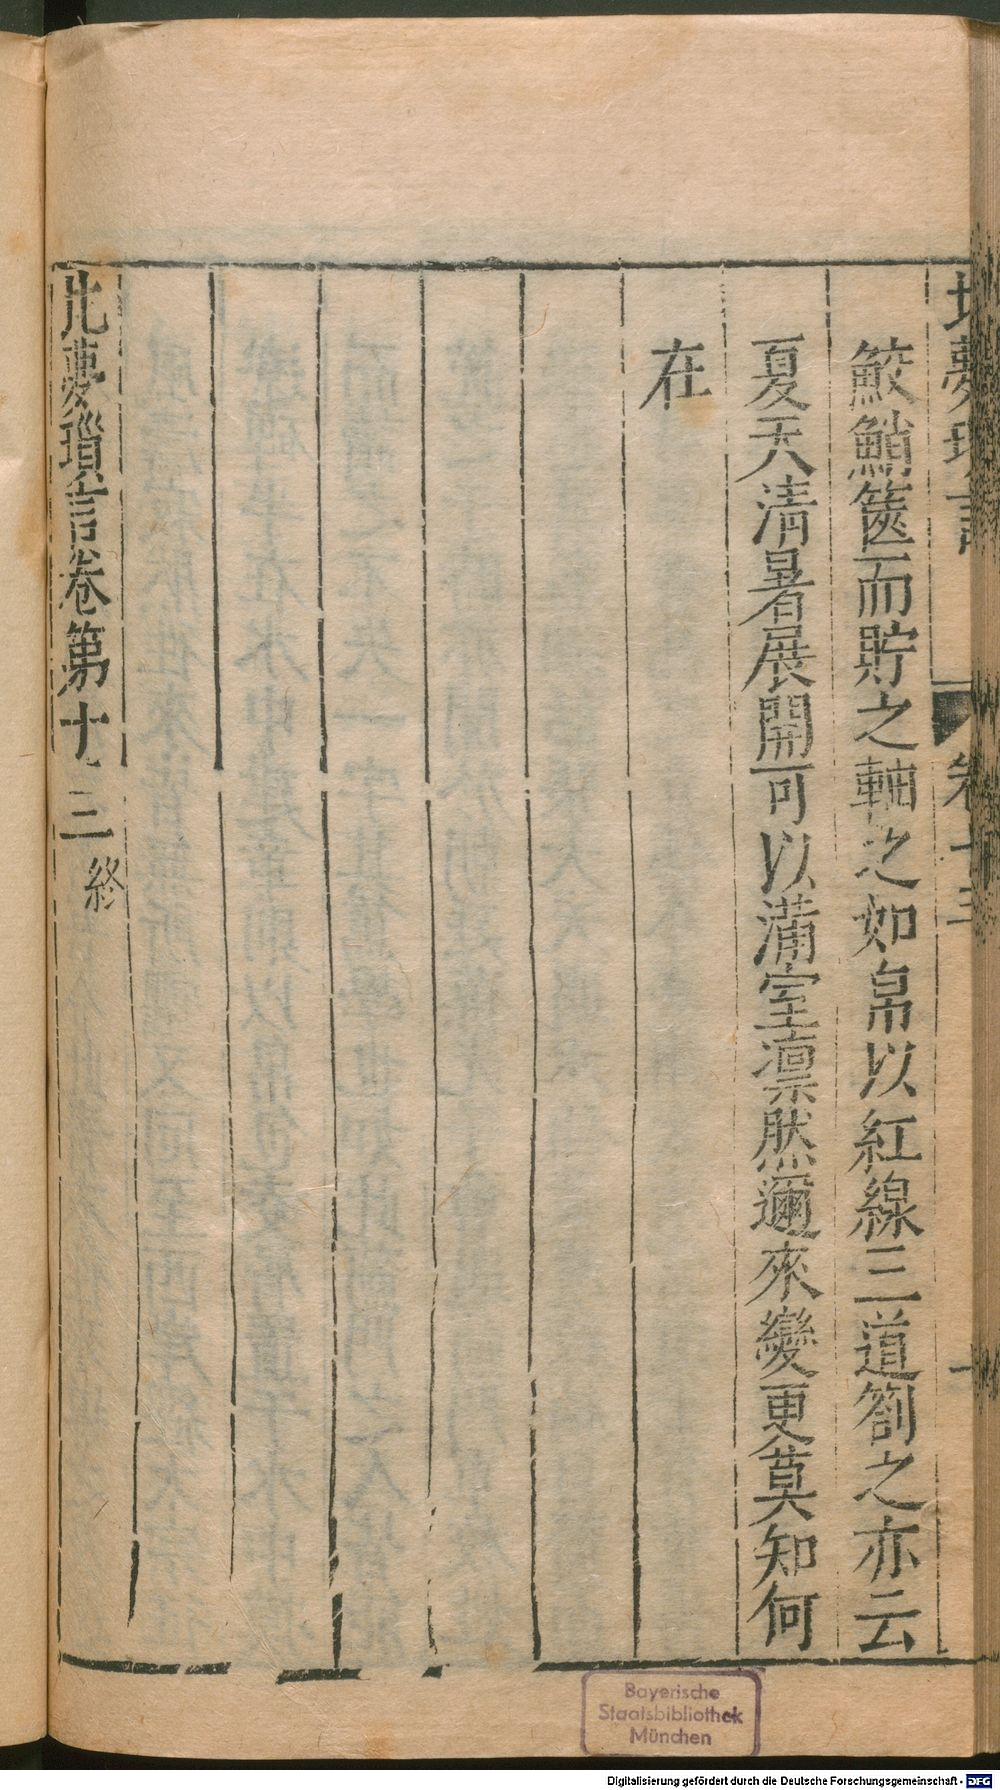 鮫鮹篋而貯之軸之如帛以紅線三道劄之亦云
夏天清暑展開可以滿室凛然邇來變更莫知何
在
北夢瑣言卷第十三終
卷十三
Bayerische
Staatsbibliothek
München
Digitalisierung gefördert durch die Deutsche Forschungsgemeinschaft - DFG